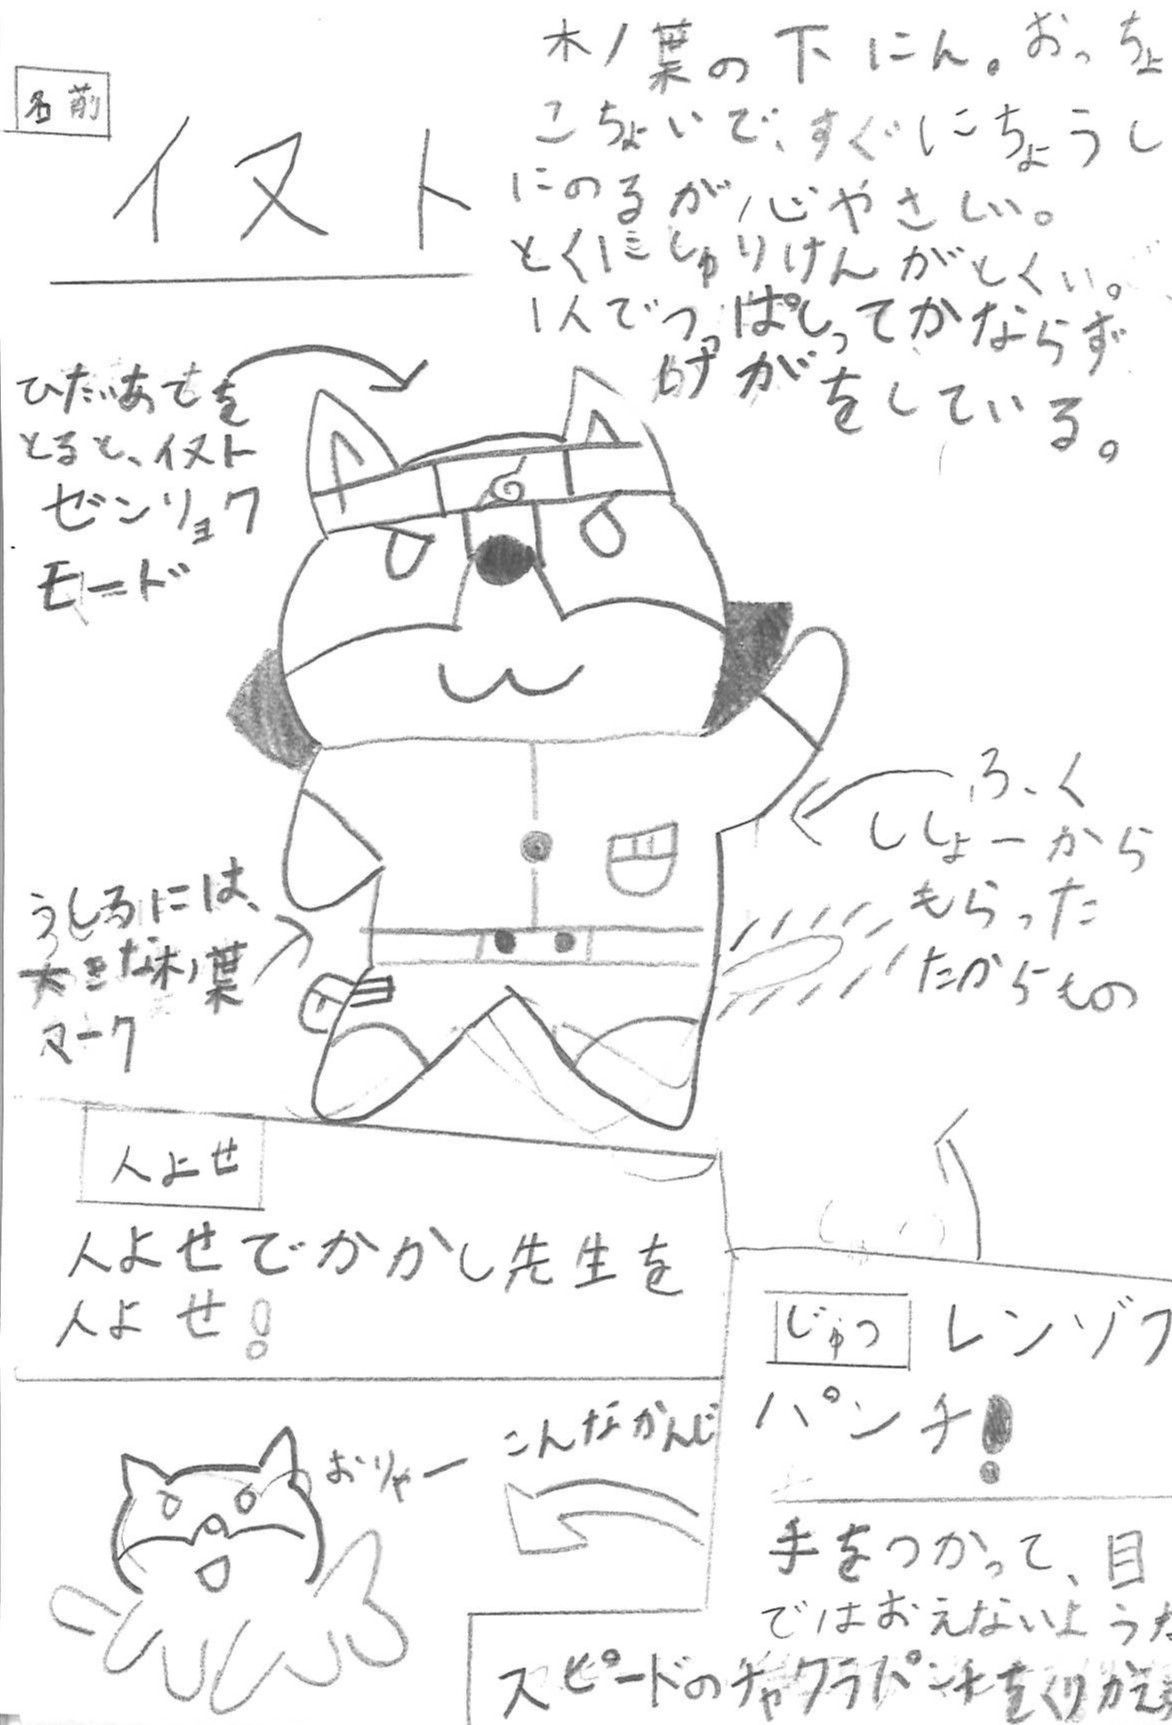 名前
イヌト
木ノ葉の下にん。おっちょ
こちょいで、すぐにちょうし
にのるが心やさしい。
とくにしゅりけんがとくい。
1人でつっぱしってかならず
けがをしている。
ひたいあてを
とると、イヌト
ゼンリョク
モード
ふ、く
ししょーから
もらった
たからもの
うしろには、
大きな木ノ葉
マーク
人よせ
人よせでかかし先生を
人よせ!
じゅつ レンゾク
パンチ!
手をつかって、目
ではおえないような
スピードのチャクラパンチをくりかえす
こんなかんじ
おりゃー